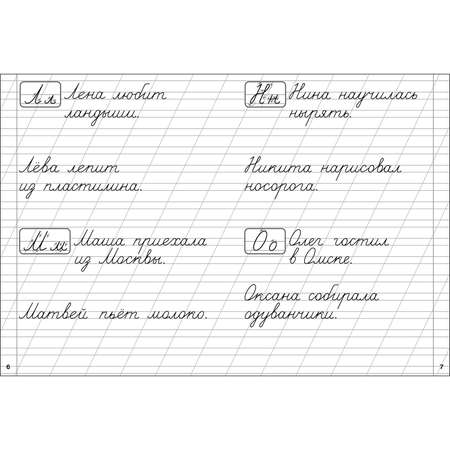 Лл Лена любит
ландыши.
Лёва лепит
из пластилина.
Мм Маша приехала
из Москвы.
Матвей пьёт молоко.
6
Нн Нина научилась
нырять.
Никита нарисовал
носорога.
Оо Олег гостил
в Омске.
Оксана собирала
одуванчики.
7